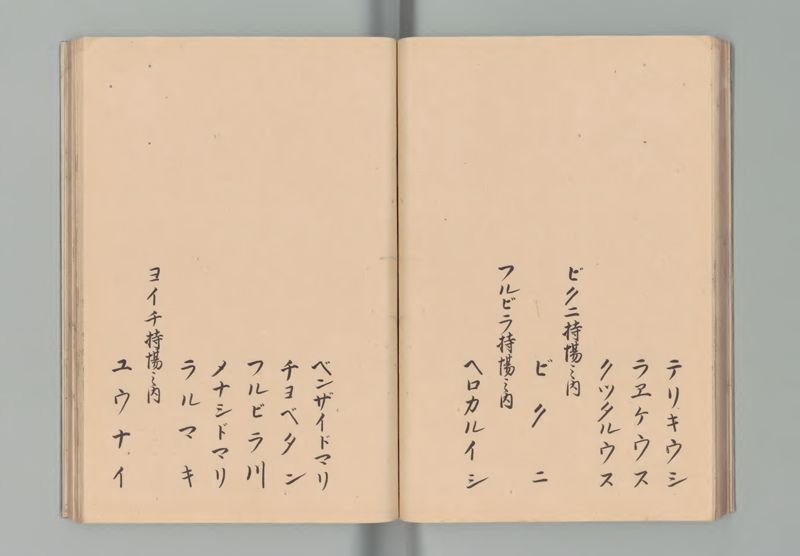 テリキウシ
ラヱケウス
クツタルウス
ビクニ持場之内
ビクニ
フルビラ持場之内
ヘロカルイシ
ベンザイドマリ
チヨベタン
フルビラ川
メナシドマリ
ラルマキ
ヨイチ持場之内
ユウナイ